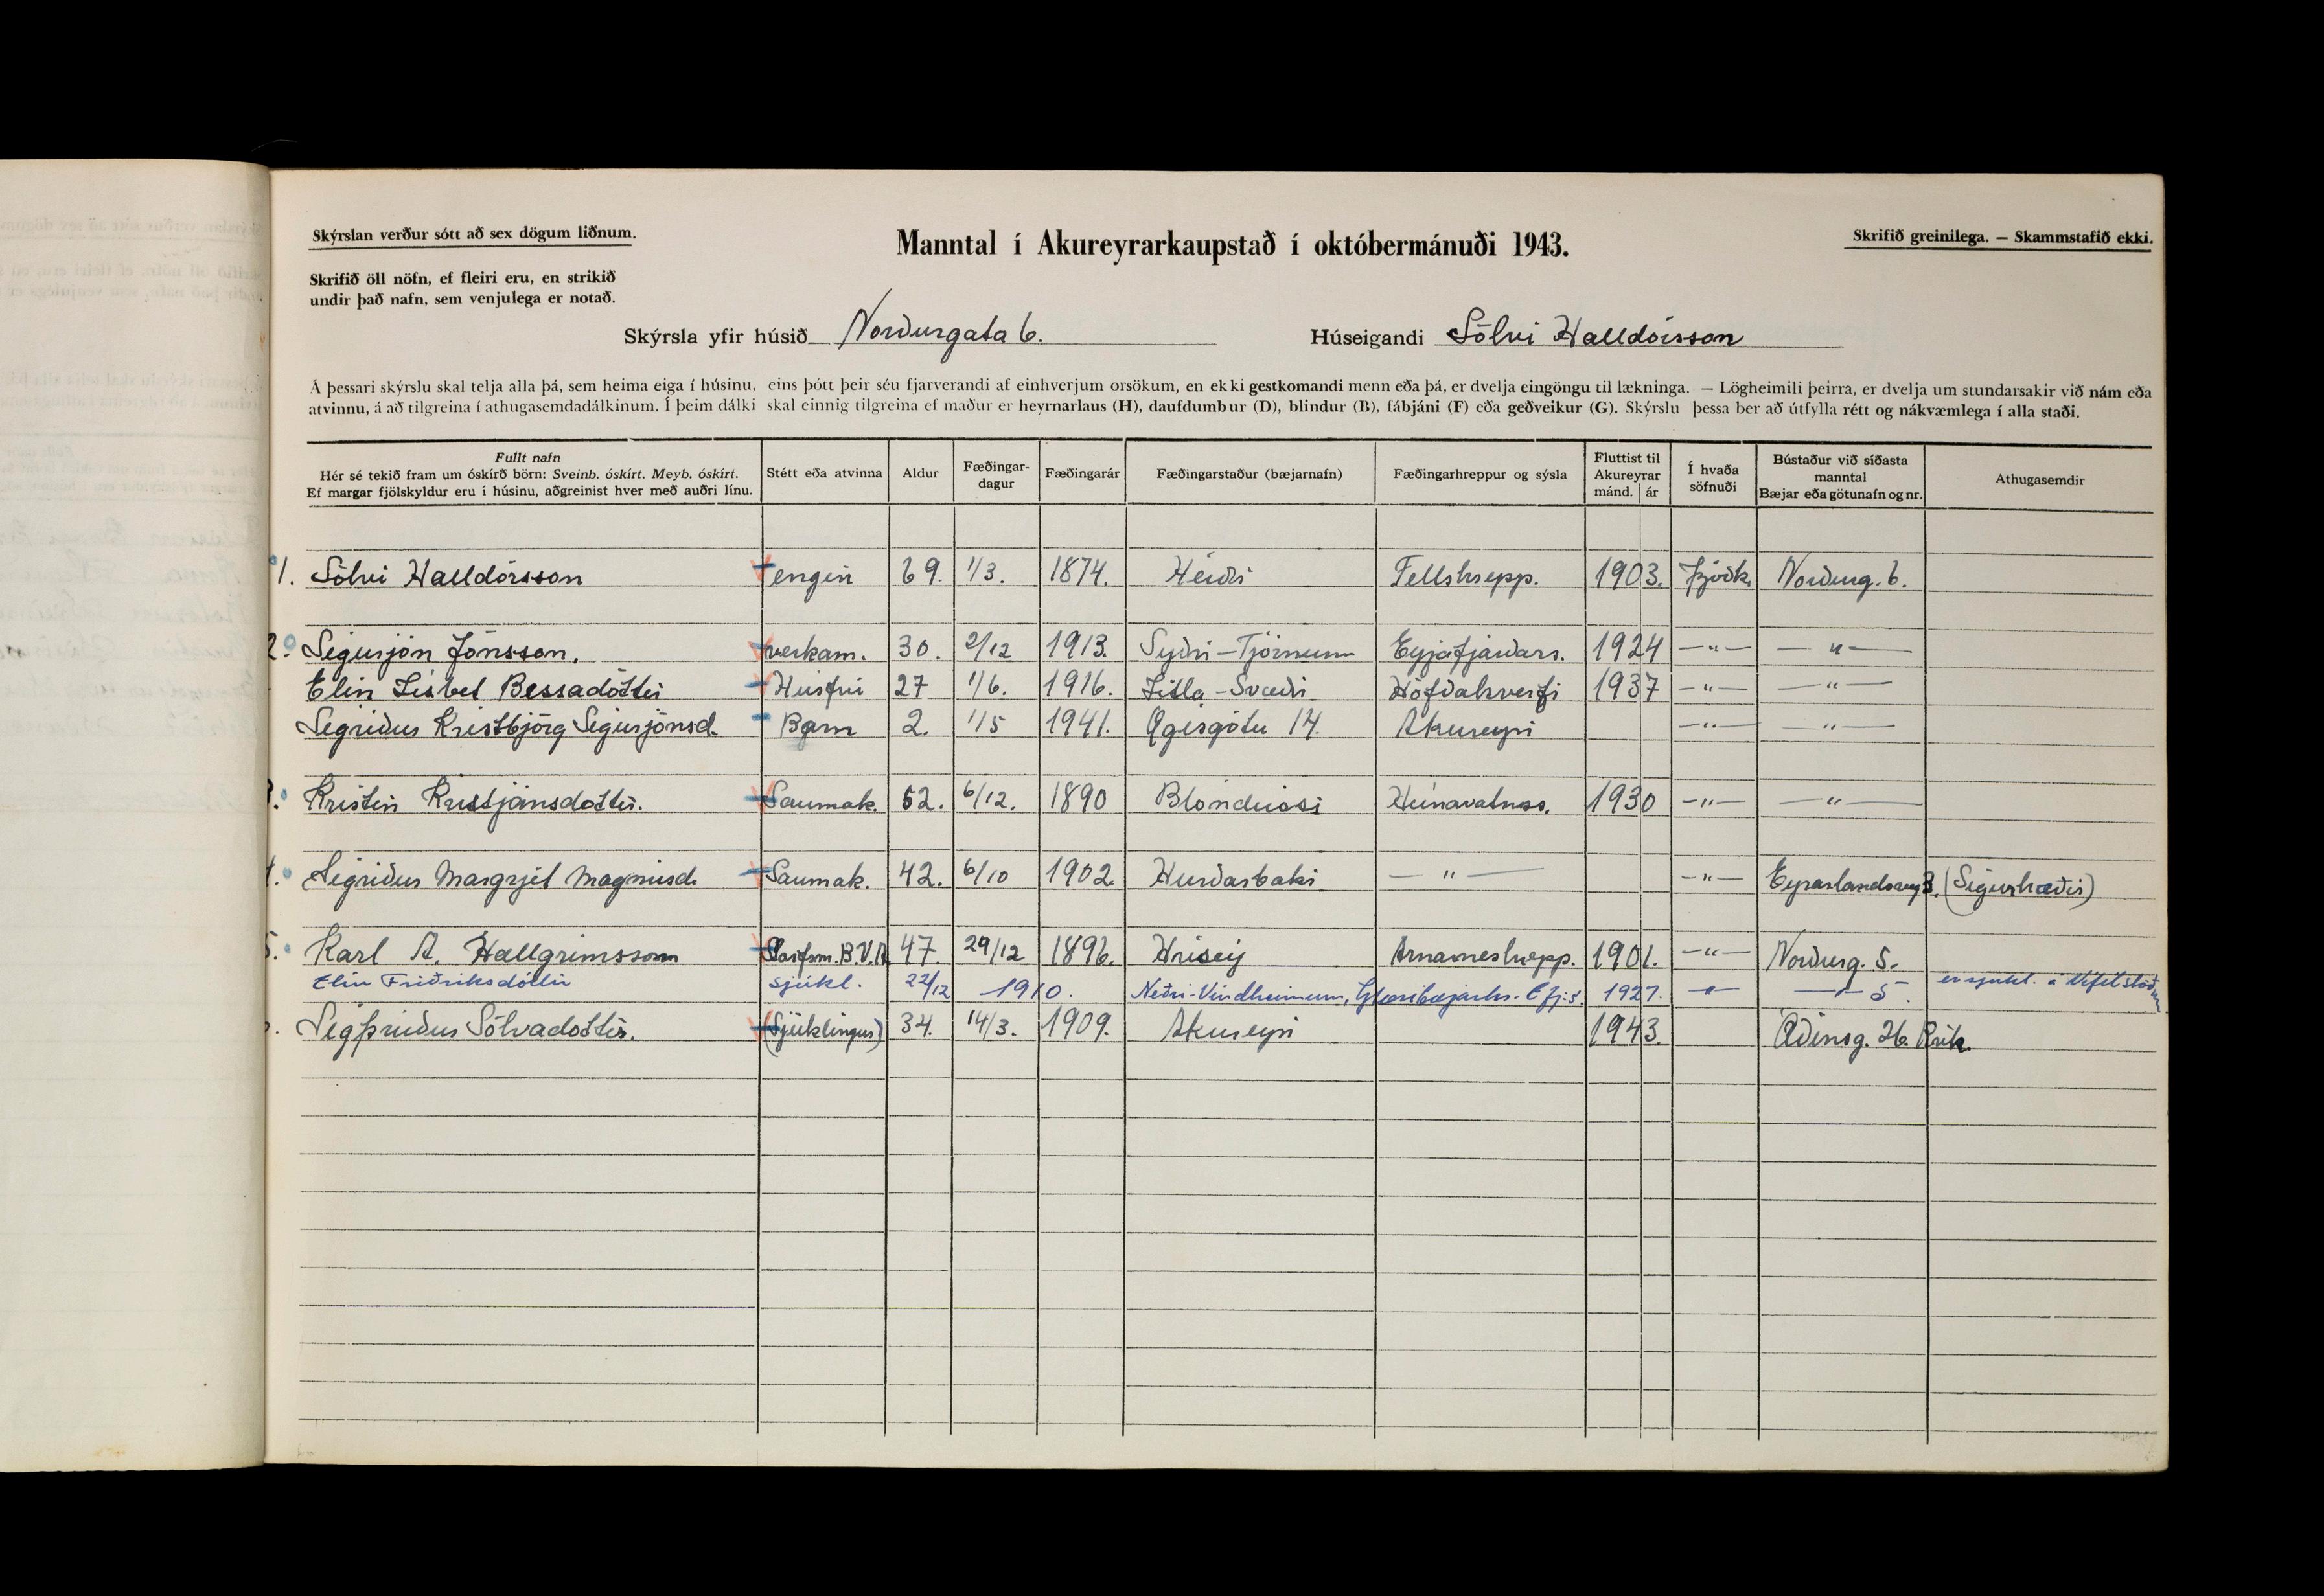 Skýrslan verður sótt að sex dögum liðnum.
Manntal í Akureyrarkaupstað í októbermánuði 1943.
Skrifið greinilega. — Skammstafið ekki.
Skrifið öll nöfn, ef fleiri eru, en strikið
undir það nafn, sem venjulega er notað.
Skýrsla yfir húsið Norðurgata 6. Húseigandi Sölvi Halldórsson
Á þessari skýrslu skal telja alla þá, sem heima eiga í húsinu, eins þótt þeir séu fjarverandi af einhverjum orsökum, en ekki gestkomandi menn eða þá, er dvelja eingöngu til lækninga. — Lögheimili þeirra, er dvelja um stundarsakir við nám eða
atvinnu, á að tilgreina í athugasemdadálkinum. Í þeim dálki skal einnig tilgreina ef maður er heyrnarlaus (H), daufdumbur (D), blindur (B), fábjáni (F) eða geðveikur (G). Skýrslu þessa ber að útfylla rétt og nákvæmlega í alla staði.
Fullt nafn
Hér sé tekið fram um óskírð börn: Sveinb. óskírt. Meyb. óskírt.
Ef margar fjölskyldur eru í húsinu, aðgreinist hver með auðri línu.
Stétt eða atvinna
Aldur
Fæðingar-
dagur
Fæðingarár
Fæðingarstaður (bæjarnafn)
Fæðingarhreppur og sýsla
Fluttist til
Akureyrar
mánd. | ár
Í hvaða
söfnuði
Bústaður við síðasta
manntal
Bæjar eða götunafn og nr.
Athugasemdir
1. Sölvi Halldórsson engin 69. 1/3. 1874. Heiði Fellshrepp. 1903. þjóðk. Norðurg. 6.
2. Sigurjón Jónsson. verkam. 30. 2/12 1913. Syðri-Tjörnum Eyjafjarðars. 1924 —"— —"—
Elín Lísbet Bessadóttir Húsfrú 27 1/6. 1916. Litla-Svæði Höfðahverfi 1937 —"— —"—
Sigríður Kristbjörg Sigurjónsd. Barn 2. 1/5 1941. Ægisgötu 14. Akureyri —"— —"—
3. Kristín Kristjánsdóttir. Saumak. 52. 6/12. 1890 Blönduósi Húnavatnss. 1930 —"— —"—
4. Sigríður Margrjet Magnúsd. Saumak. 42. 6/10 1902. Hurðarbaki —"— —"— Eyrarlandsveg 3. (Sigurhæðir)
5. Karl A. Hallgrímsson Starfsm. B.V.A. 47. 29/12 1896. Hrísey Arnarneshrepp. 1901. —"— Norðurg. 5.
Elín Friðriksdóttir sjúkl. 22/12 1910. Neðri-Vindheimum, Glæsibæjarhr. Efj.s. 1927. —"— —"— 5. er sjúkl. á Vífilstöðum
Sigþrúður Sölvadóttir. (Sjúklingur) 34. 14/3. 1909. Akureyri 1943. Óðinsg. 26. Rvík.